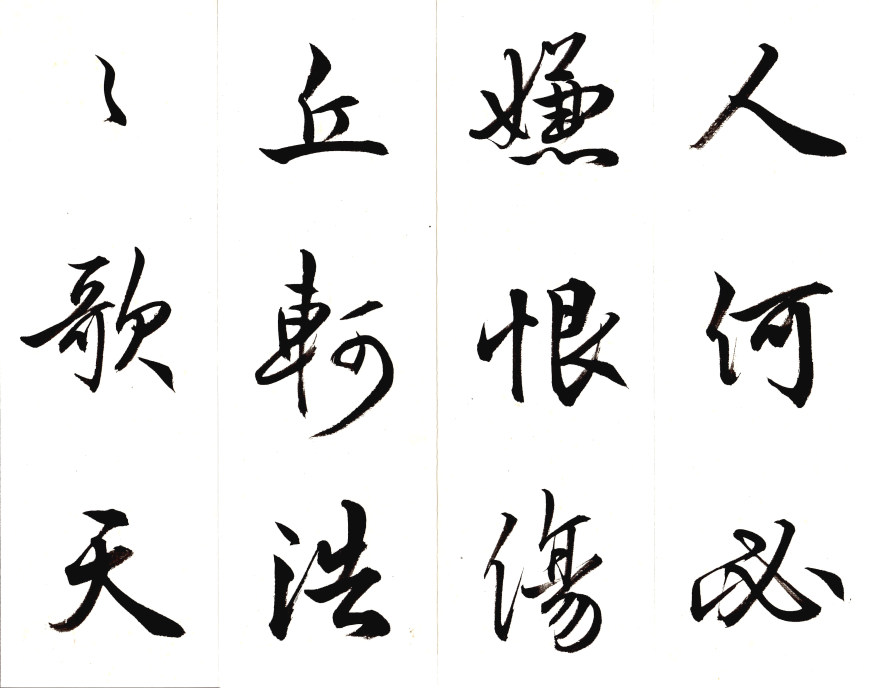 人何必
嫌恨傷
丘軻浩
〻歌天